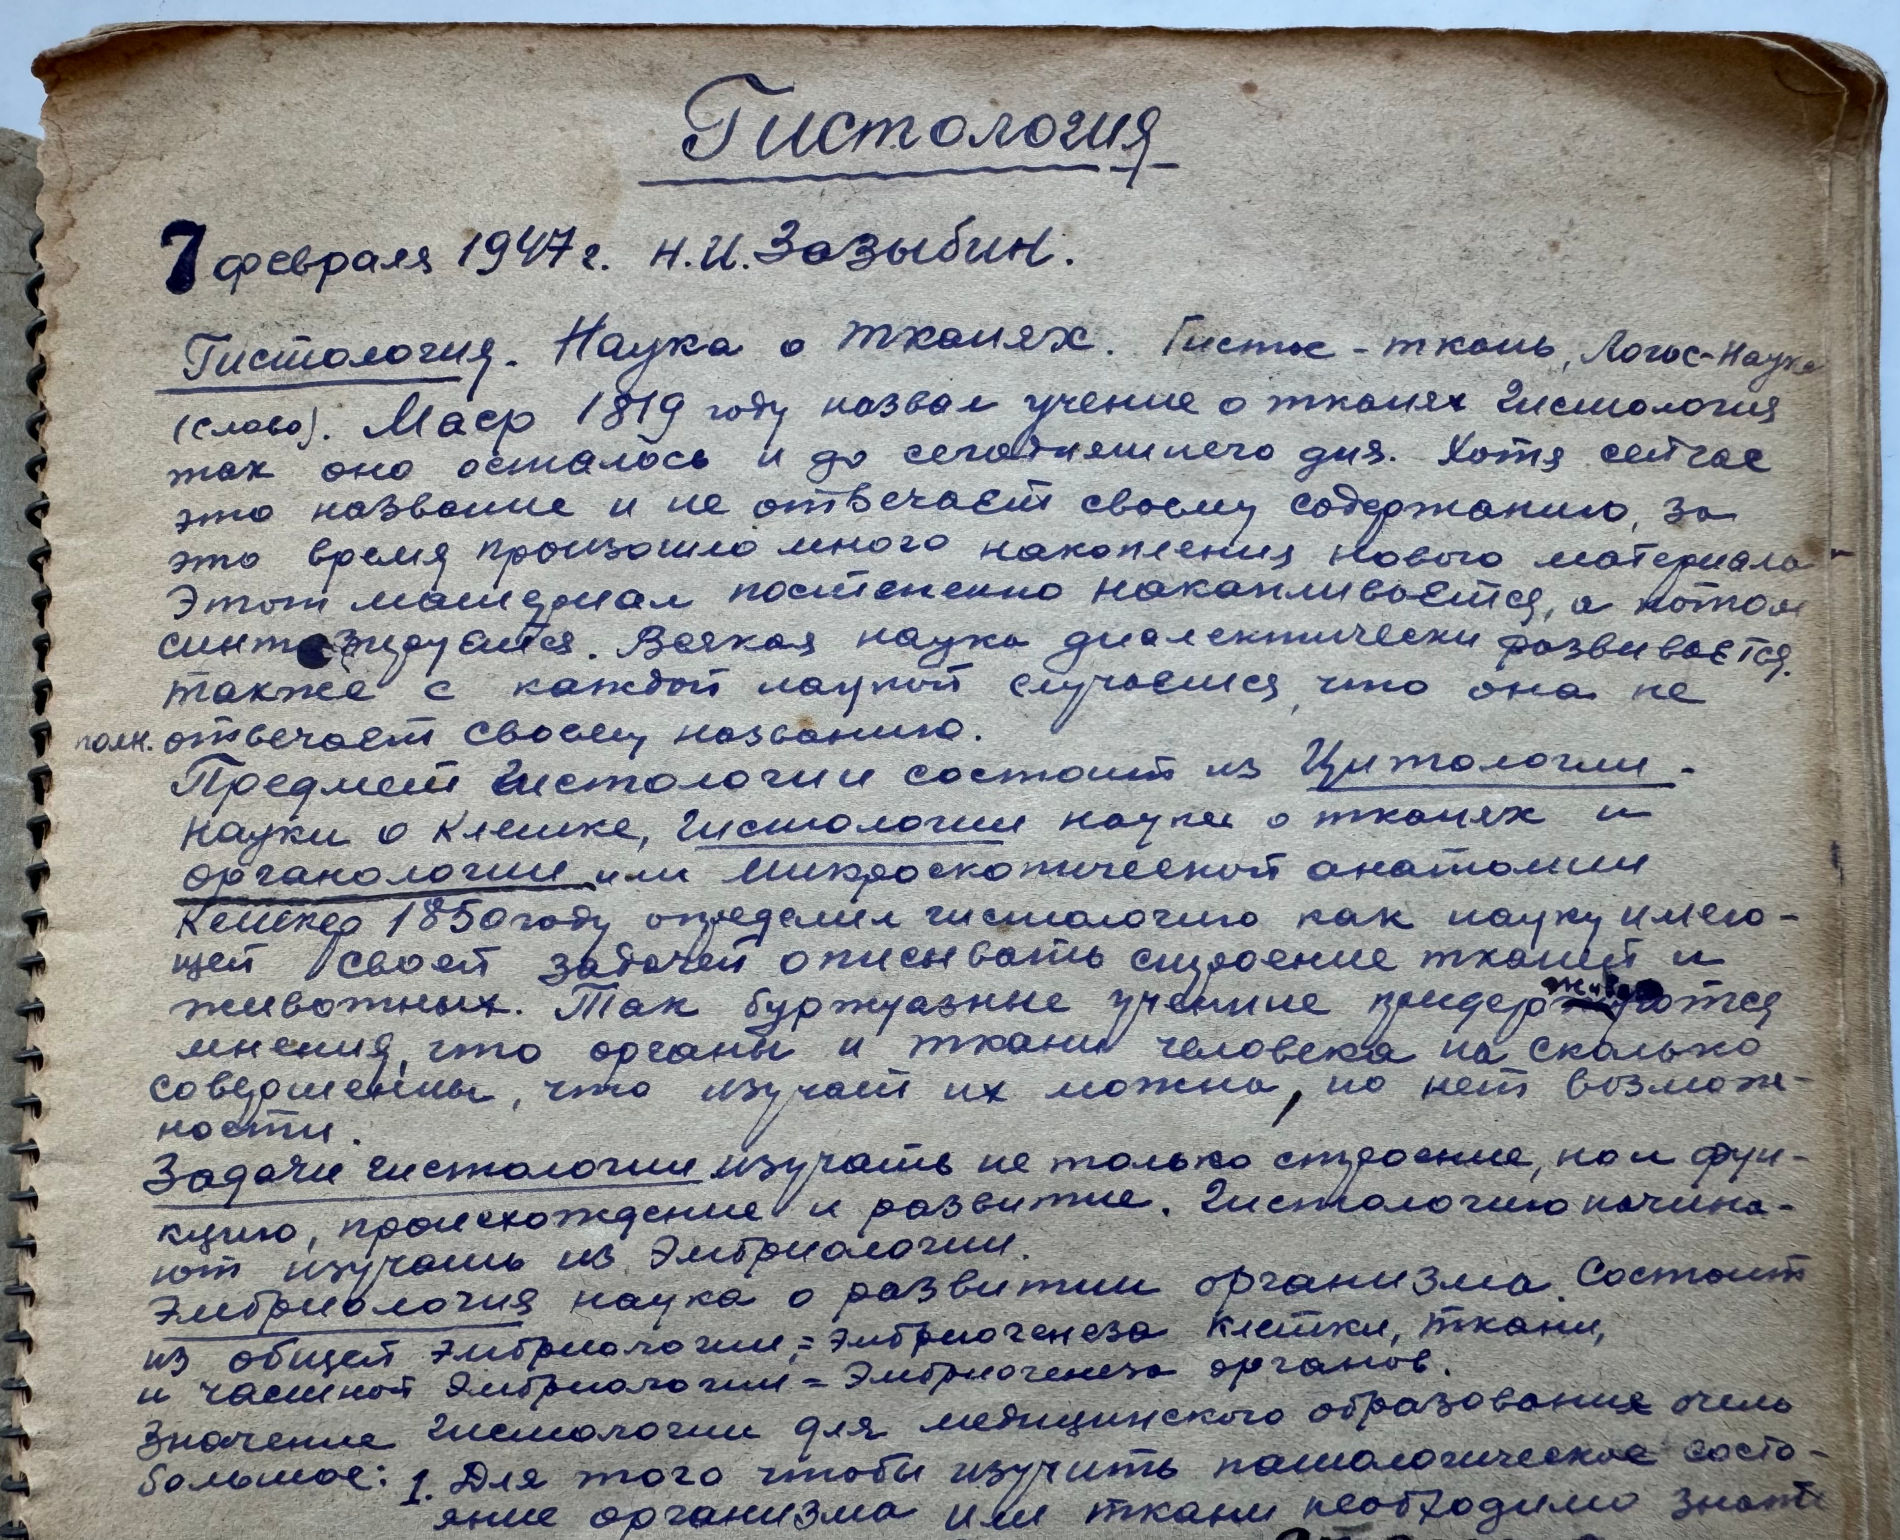 Гистология
7 февраля 1947 г. Н.И. Зазыбин.
Гистология. Наука о тканях. Гистос - ткань, Логос - Наука
(слово). Маер 1819 году назвал учение о тканях гистология
так оно осталось и до сегодняшнего дня. Хотя сейчас
это название и не отвечает своему содержанию, за
это время произошло много накопления нового материала
Этот материал постепенно накапливается, а потом
синтезируется. Всякая наука диалектически развивается.
также с каждой наукой случается, что она не
полн. отвечает своему названию.
Предмет гистологии состоит из Цитологии -
науки о клетке, гистологии науки о тканях и
органологии или микроскопической анатомии
Келикер 1850 году определил гистологию как науку имею-
щей своей задачей описывать строение тканей и
животных. Так буржуазные учение придерживаются
мнения, что органы и ткани человека на сколько
совершенны, что изучать их можно, но нет возмож-
ности.
Задачи гистологии изучать не только строение, но и фун-
кцию, происхождение и развитие. Гистологию начина-
ют изучать из Эмбриологии.
Эмбриология наука о развитии организма. Состоит
из общей эмбриологии, = эмбриогенеза клетки, ткани,
и частной эмбриологии = Эмбриогенеза органов.
Значение гистологии для медицинского образования очень
большое: 1. Для того чтобы изучить патологическое состо-
яние организма или ткани необходимо знать